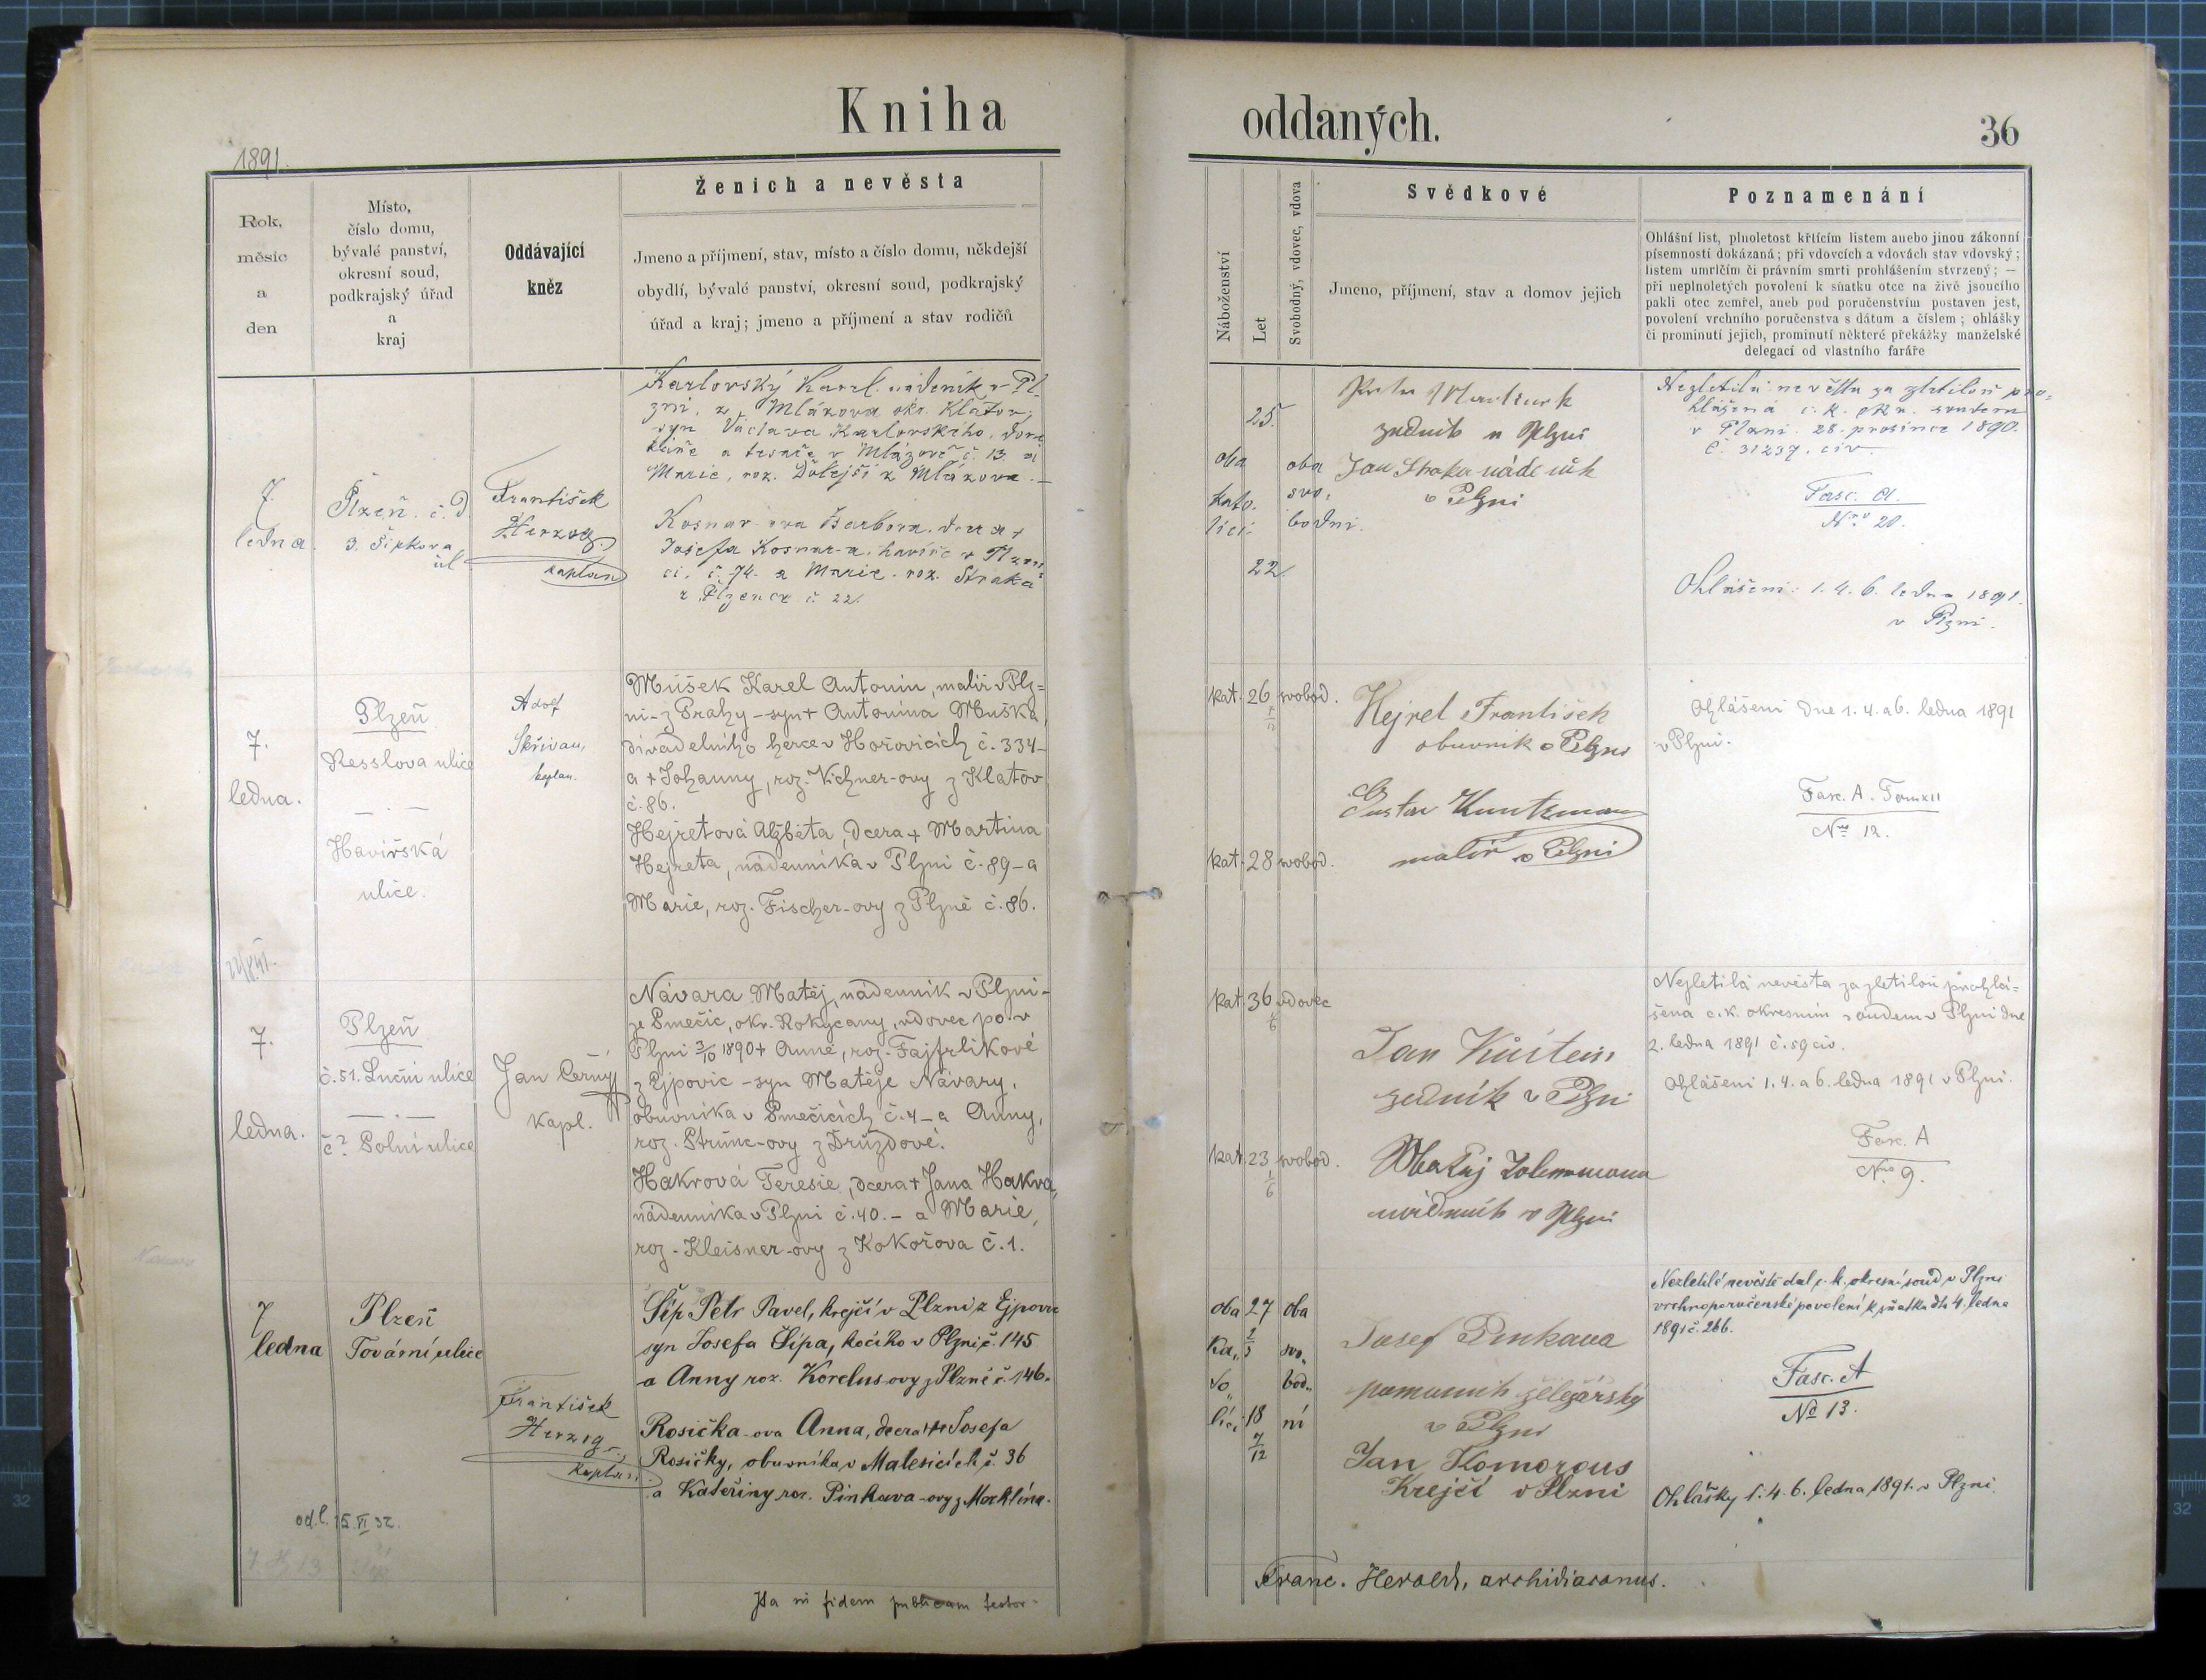 Kniha
oddaných.
36
1891.
Rok,
měsíc
a
den
Místo,
číslo domu,
bývalé panství,
okresní soud,
podkrajský úřad
a
kraj
Oddávající
kněz
Ženich a nevěsta
Jmeno a příjmení, stav, místo a číslo domu, někdejší
obydlí, bývalé panství, okresní soud, podkrajský
úřad a kraj; jmeno a příjmení a stav rodičů
Náboženství
Let
Svobodný, vdovec, vdova
Svědkové
Jmeno, příjmení, stav a domov jejich
Poznamenání
Ohlášní list, plnoletost křtícím listem anebo jinou zákonní
písemností dokázaná; při vdovcích a vdovách stav vdovský;
listem umrlčím či právním smrti prohlášením stvrzený; —
při neplnoletých povolení k sňatku otce na živě jsoucího
pakli otec zemřel, aneb pod poručenstvím postaven jest,
povolení vrchního poručenstva s dátum a číslem; ohlášky
či prominutí jejich, prominutí některé překážky manželské
delegací od vlastního faráře
7.
ledna.
Plzeň. č. d
3. Šípkova
ul
František
Herzog
kaplan
Karlovský Karel. nádeník v Pl
zni, z Mlázova okr. Klatov,
syn Václava Karlovského, dom
káře a tesaře v Mlázově č. 13. a
Marie, roz. Dolejší z Mlázova. —
Kosnar-ova Barbora. dcera +
Josefa Kosnar-a, havíře v Plzen
ci. č. 74. a Marie. roz. Straka
z Plzence č. 22.
oba
kato.
líci
25.
22.
oba
svo.
bodni.
zedník v Plzni
Jan Straka nádeník
v Plzni
Nezletilá nevěsta za zletilou pro=
hlášena c. k. okr. soudem
v Plzni. 28. prosince 1890.
č. 31239. civ.
Fasc. A.
Nro 20.
Ohlášeni: 1. 4. 6. ledna 1891.
v Plzni.
7.
ledna.
Plzeň
Resslova ulice
— . —
Havířská
ulice.
Adolf
Skřivan,
kaplan.
Můšek Karel Antonín, malíř v Plz=
ni - z Prahy - syn + Antonína Muška,
divadelního herce v Hořovicích č. 334 -
a + Johanny, roz. Vichner-ovy z Klatov
č. 86.
Hejretová Alžběta, dcera + Martina
Hejreta, nádenníka v Plzni č. 89 - a
Marie, roz. Fischer-ovy z Plzně č. 86.
kat. 26 svobod.
kat. 28 svobod.
Hejret František
obuvník v Plzni
Gustav Kuntzman
malíř v Plzni
Ohlášeni dne 1. 4. a 6. ledna 1891
v Plzni.
Fasc. A.
Nro 12.
7.
ledna.
Plzeň
č. 51. Luční ulice
— . —
č? Polní ulice
Jan Černý
kapl.
Návara Matěj, nádenník v Plzni -
ze Smečic, okr. Rokycany, vdovec po v
Plzni 3/10 1890 + Anně, roz. Fajfrlíkové
z Ejpovic - syn Matěje Návary,
obuvníka v Smečicích č. 4 - a Anny,
roz. Strunc-ovy z Družďové.
Hakrová Teresie, dcera + Jana Hakra,
nádenníka v Plzni č. 40. - a Marie,
roz. Kleisner-ovy z Kokořova č. 1.
kat. 36 vdovec
kat. 23 svobod.
1/6
Jan
zedník v Plzni
Matěj
v Plzni
Nezletilá nevěsta za zletilou prohlá=
šena c. k. okresním soudem v Plzni dne
2. ledna 1891 č. 59 civ.
Ohlášeni 1. 4. a 6. ledna 1891 v Plzni.
Fasc. A
Nro 9.
7
ledna
Plzeň
Tovární ulice
František
Herzog
kaplan.
Šíp Petr Pavel, krejčí v Plzni z Ejpovic
syn Josefa Šípa, kočího v Plzni č. 145
a Anny roz. Korelus-ovy z Plzně č. 146.
Rosička-ova Anna, dcera + Josefa
Rosičky, obuvníka v Malesicích č. 36
a Kateřiny roz. Pinkava-ovy z Mochtína.
oba 27 oba
ka„ svo„
to„ bod„
líci 18 ní
7/12
Josef Pinkava
pomocník železářský
v Plzni
Jan Komorous
Krejčí v Plzni
Nezletilé nevěstě dal c. k. okresní soud v Plzni
vrchnoporučenské povolení k sňatku dto 4. ledna
1891 č. 266.
Fasc. A
No 13.
Ohlášky 1. 4. 6. ledna 1891. v Plzni.
od. l. 15. VI 32.
Ita in fidem publicam testor
Franc. Herold, archidiaconus.
32
32